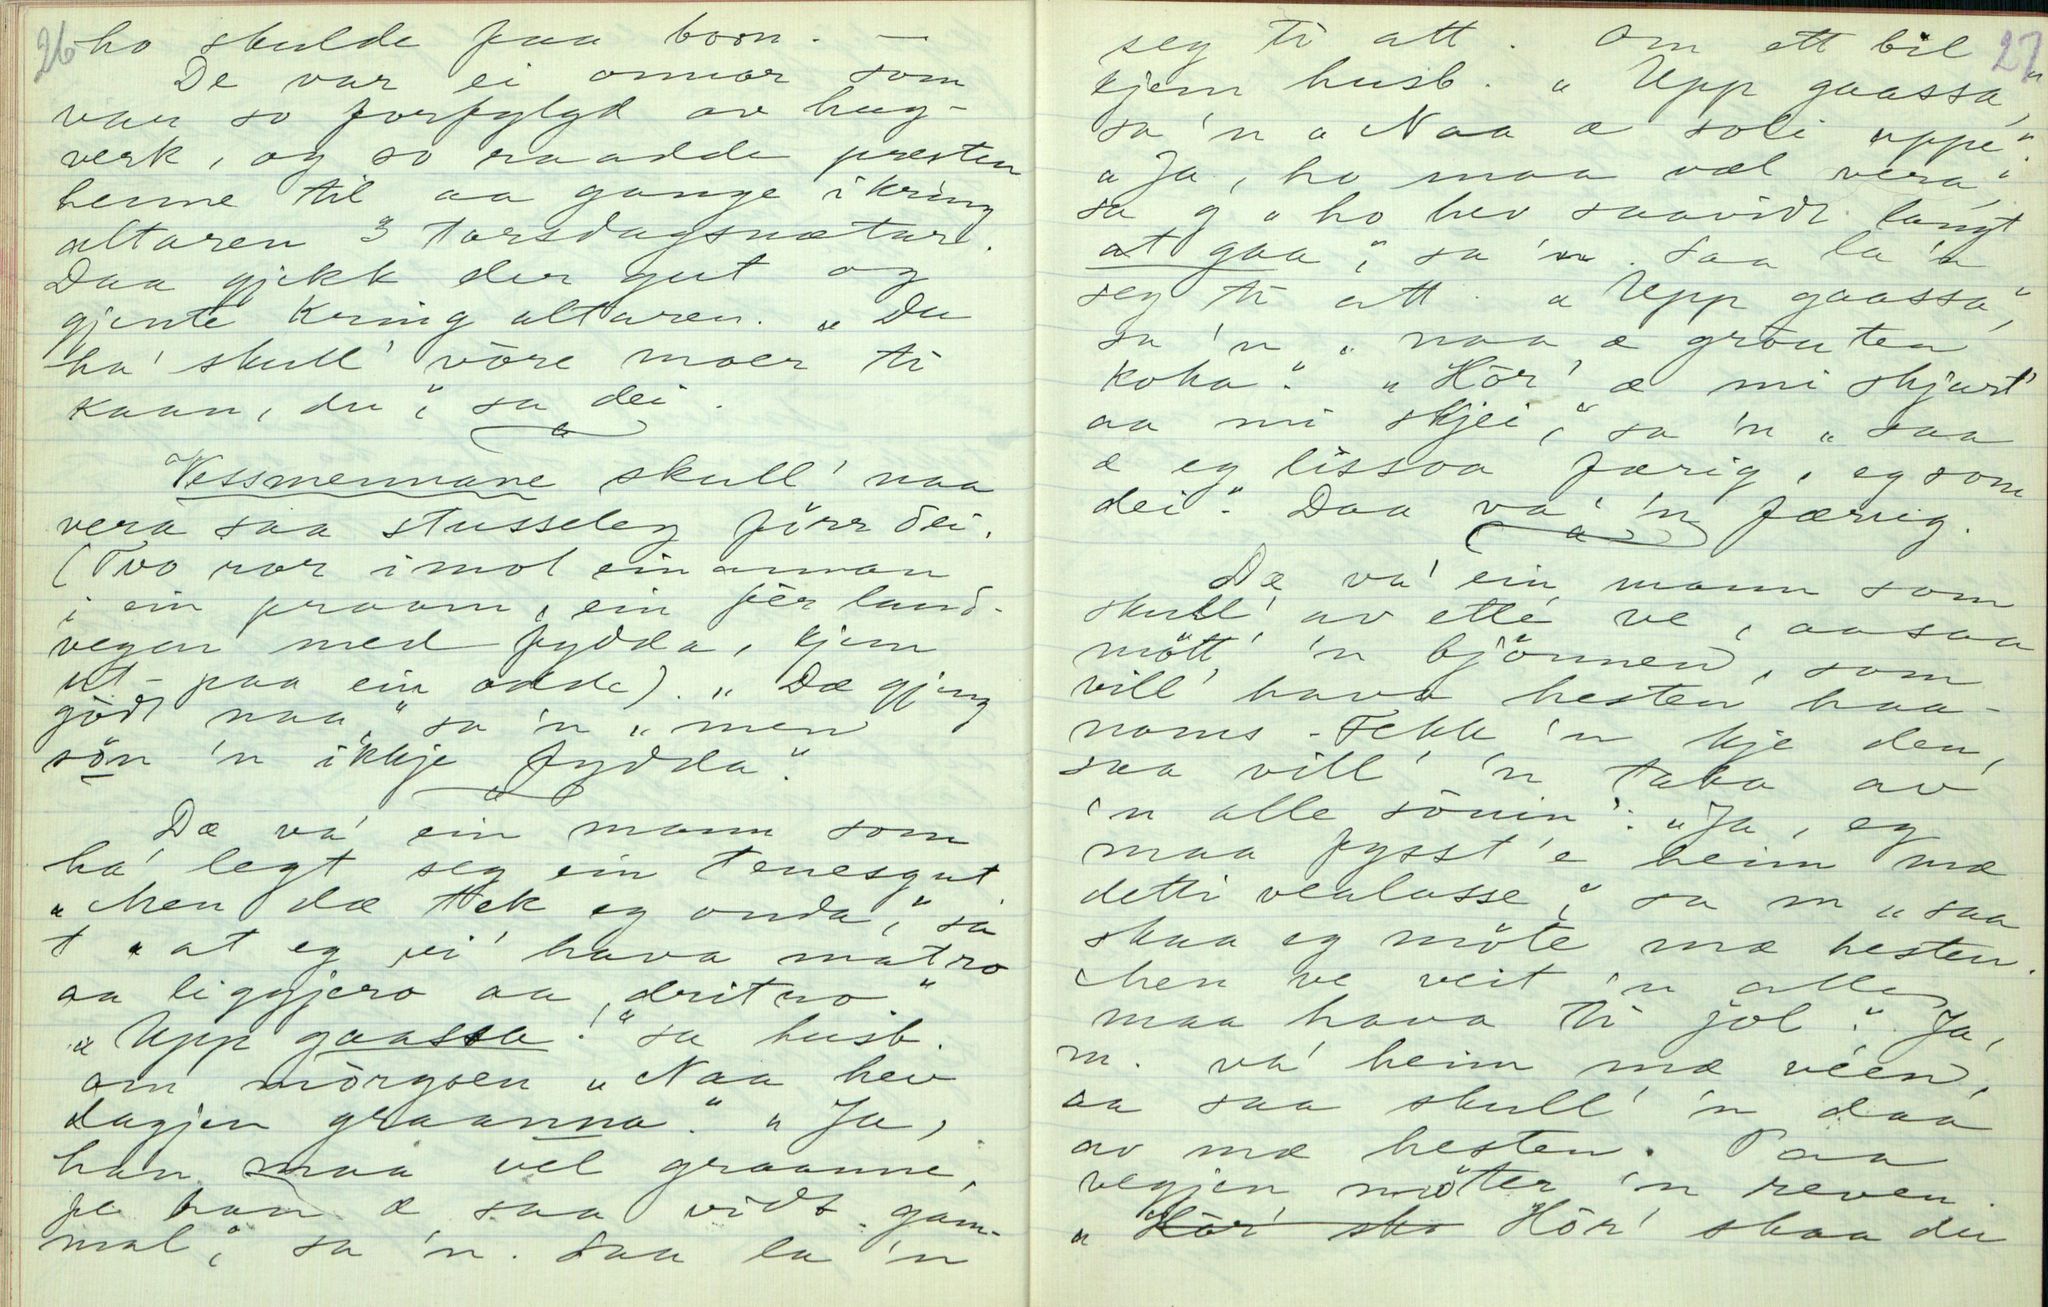 26
ho skulde faa born. —
De var ei onnor som
var so forfylgd av hug-
verk, og so raadde presten
henne til aa gange ikring
altaren 3 torsdagsnætar.
Daa gjekk der gut og
gjente kring altaren. „Du
ha' skull' vöre moer ti
kaan, du", sa dei.
Vessmennane skull' naa
vera saa stusseleg förr dei.
(Tvo ror imot einannan
i ein praam, ein fèr land-
vegen med fydda, kjem
ut paa ein odde). „Dæ gjeng
gödt naa," sa 'n „men
sön 'n ikkje fydda."
Dæ va' ein mann som
ha' legt seg ein tenesgut
„Men dæ tek eg onda," sa
t „at eg vi' hava matro
aa liggjero aa dritro"
„Upp gaassa!" sa husb.
om mörgoen „Naa hev
dagjen graanna." „Ja,
han maa vel graanne,
fe han æ saa vidt gam-
mal," sa 'n. Saa la 'n
27
seg ti att. Om ett bil
kjem husb. „Upp gaassa,"
sa 'n „Naa æ soli uppe".
„Ja, ho maa væl vera,"
sa g „ho hev saavidt langt
at gaa," sa 'n. Saa la 'n
seg ti att. „Upp gaassa,"
sa 'n „naa æ gröuten
koka." „Hör' æ mi skjurt'
aa mi skjei," sa 'n „saa
æ eg lissoa færig, eg som
dei." Daa va' 'n færig.
Dæ va' ein mann som
skull' av ette ve, aasaa
mött' 'n bjönnen, som
vill' hava hesten haa-
noms. Fekk 'n kje den,
saa vill' 'n taka av
'n alle söuin': „Ja, eg
maa fysst 'e heim mæ
detti vealasse," sa m „saa
skaa eg möte mæ hesten.
Men ve veit 'n alle
maa hava ti jol." Ja,
m. va' heim mæ véen,
aa saa skull' 'n daa
av mæ hesten. Paa
vegjen möter 'n reven.
„Hör' ska Hör' skaa du